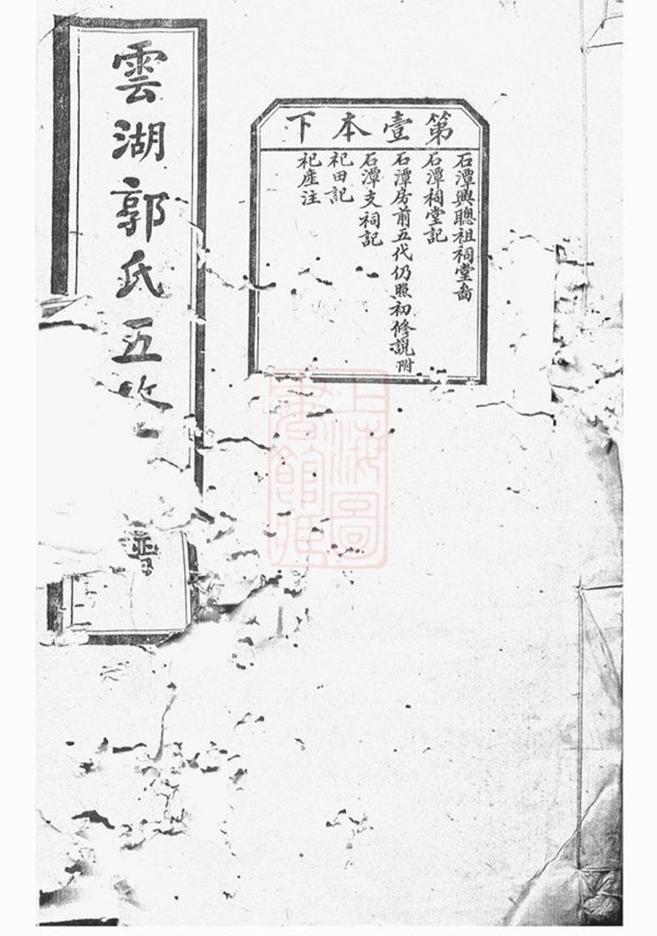 第壹本下
石潭興聰祖祠堂啚
石潭祠堂記
石潭房前五代仍照初修說附
石潭支祠記
祀田記
祀產注
雲湖郭氏五
上海圖
書館藏